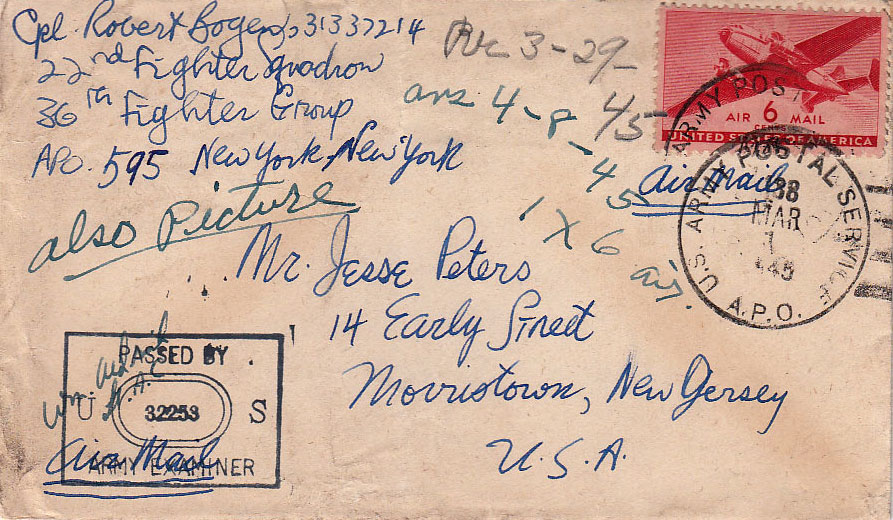 Cpl. Robert Bogen 31337214
22nd Fighter Squadron
36th Fighter Group
APO. 595 New York, New York
Rec 3-29-45
ans 4-8-45
1 X 6 air.
also Picture
Air Mail
AIR 6 MAIL
CENTS
UNITED STATES OF AMERICA
ARMY POSTAL
U.S. ARMY POSTAL SERVICE
A.P.O.
MAR
Mr. Jesse Peters
14 Early Street
Morristown, New Jersey
U.S.A.
PASSED BY
U 32253 S
ARMY EXAMINER
Air Mail